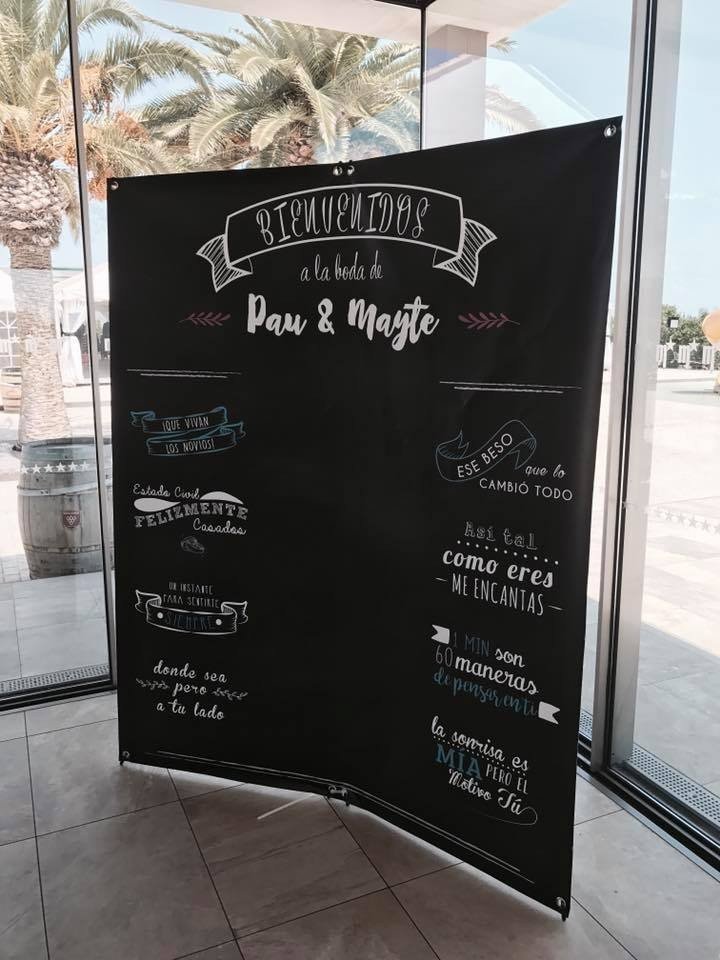 BIENVENIDOS
a la boda de
Pau & Mayte
¡QUE VIVAN
LOS NOVIOS!
Estado Civil
FELIZMENTE
Casados
UN INSTANTE
PARA SENTIRTE
SIEMPRE
donde sea
pero
a tu lado
ESE BESO
que lo
CAMBIÓ TODO
Así tal
como eres
ME ENCANTAS
1 MIN son
60 maneras
de pensar en ti
la sonrisa es
MÍA PERO EL
Motivo Tú